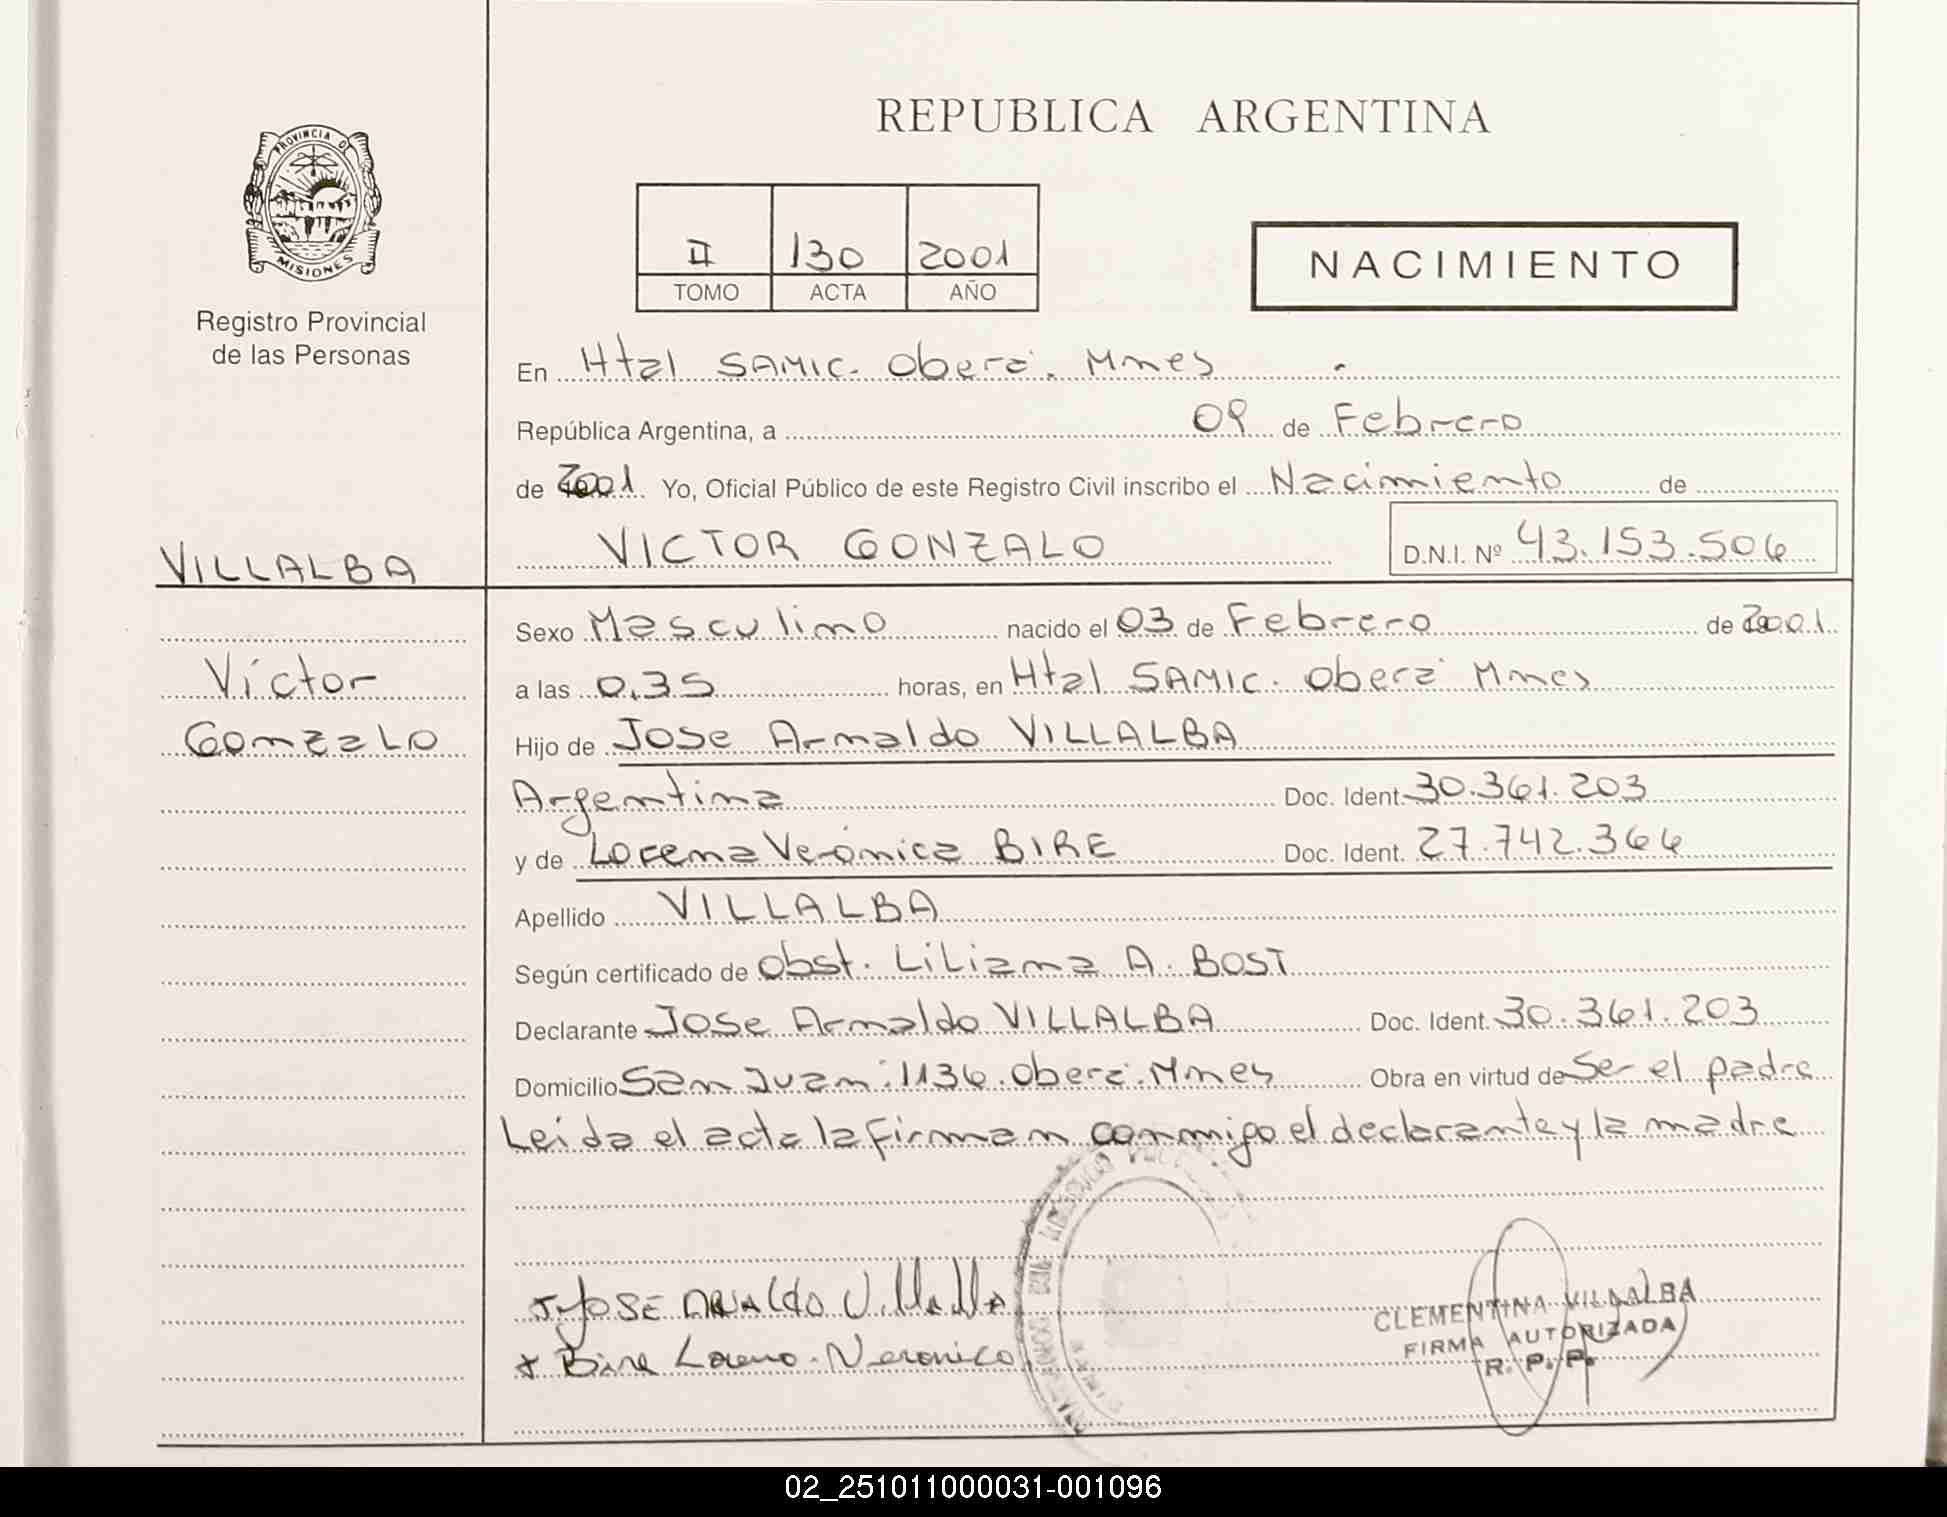 REPUBLICA ARGENTINA
PROVINCIA DE
MISIONES
Registro Provincial
de las Personas
II 130 2001
TOMO ACTA AÑO
NACIMIENTO
En Htal SAMIC. Oberá. Mnes
República Argentina, a 09 de Febrero
de 2001 Yo, Oficial Público de este Registro Civil inscribo el Nacimiento de
VICTOR GONZALO D.N.I. Nº 43.153.506
VILLALBA
Víctor
Gonzalo
Sexo Masculino nacido el 03 de Febrero de 2001
a las 0.35 horas, en Htal SAMIC. Oberá Mnes
Hijo de Jose Arnaldo VILLALBA
Argentina Doc. Ident. 30.361.203
y de Lorena Verónica BIRE Doc. Ident. 27.742.366
Apellido VILLALBA
Según certificado de obst. Liliana A. BOST
Declarante Jose Arnaldo VILLALBA Doc. Ident. 30.361.203
Domicilio San Juan. 1136. Oberá. Mnes Obra en virtud de Ser el padre
Leída el acta la firman conmigo el declarante y la madre
JOSE ARNALdO Villalba
x Bire Lorena Veronica
CLEMENTINA VILLALBA
FIRMA AUTORIZADA
R. P. P.
02_251011000031-001096